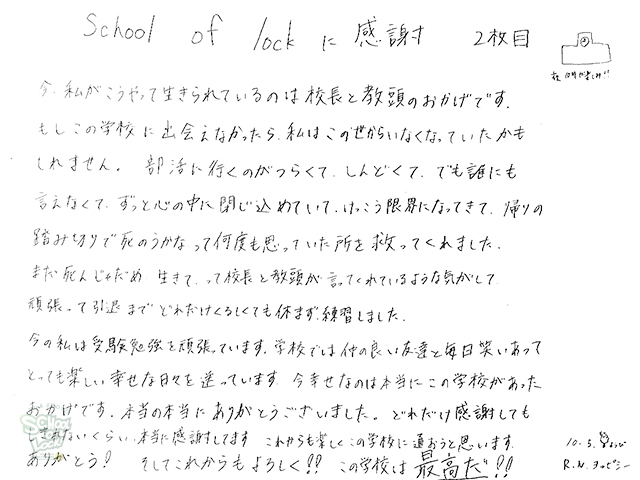 School of lock に 感謝 2枚目
今、私がこうやって生きられているのは校長と教頭のおかげです。
もしこの学校に出会えなかったら、私はこの世からいなくなっていたかも
しれません。 部活に行くのがつらくて、しんどくて、でも誰にも
言えなくて、ずっと心の中に閉じ込めていて、けっこう限界になってきて、帰りの
踏み切りで死のうかなって何度も思っていた所を救ってくれました。
まだ死んじゃだめ 生きて、って校長と教頭が言ってくれているような気がして
頑張って引退までどれだけくるしくても休まず練習しました。
今の私は受験勉強を頑張っています。学校では仲の良い友達と毎日笑いあって
とっても楽しい幸せな日々を送っています。今幸せなのは本当にこの学校があった
おかげです。本当の本当にありがとうございました。どれだけ感謝しても
しきれないくらい、本当に感謝してます これからも楽しくこの学校に通おうと思います。
ありがとう! そしてこれからもよろしく!! この学校は最高だ!!
10.3.
R.N.ヨッピー